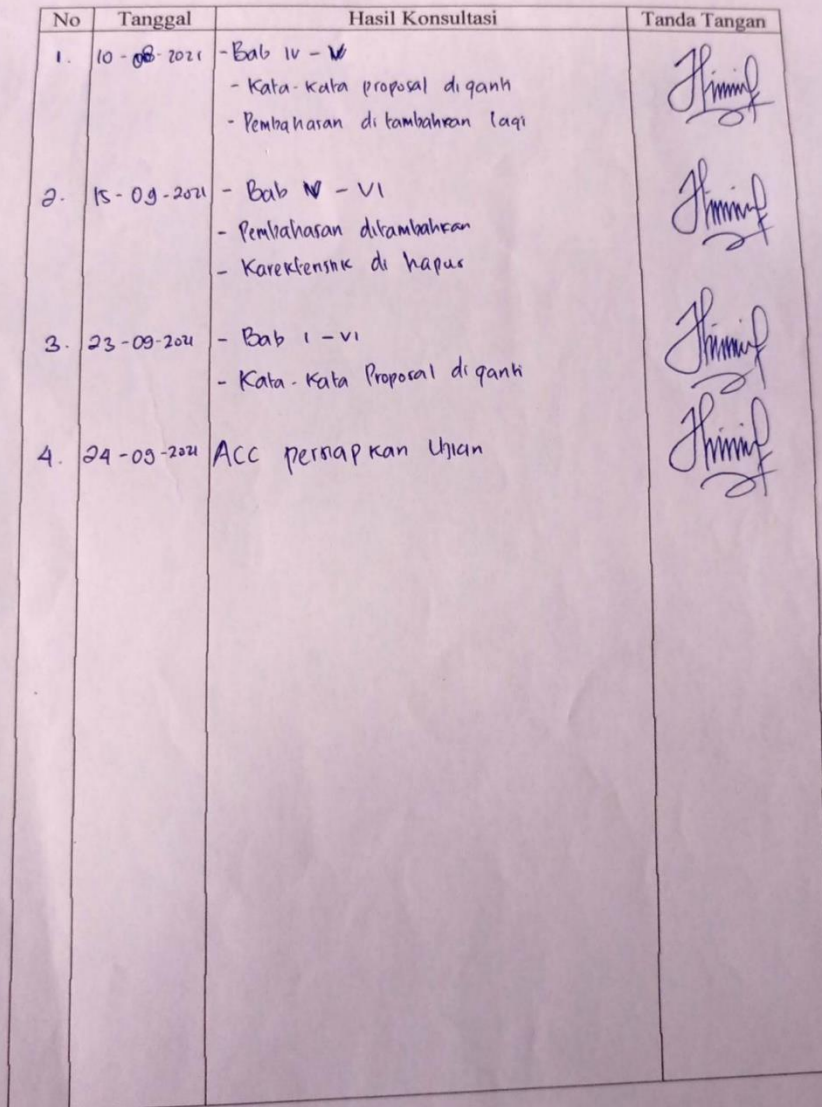 No Tanggal Hasil Konsultasi Tanda Tangan
1. 10-08-2021 - Bab IV - V
- Kata-kata proposal diganti
- Pembahasan di tambahkan lagi
2. 15-09-2021 - Bab V - VI
- Pembahasan ditambahkan
- Karekteristik di hapus
3. 23-09-2021 - Bab I - VI
- Kata-Kata Proposal diganti
4. 24-09-2021 ACC persiapkan Ujian